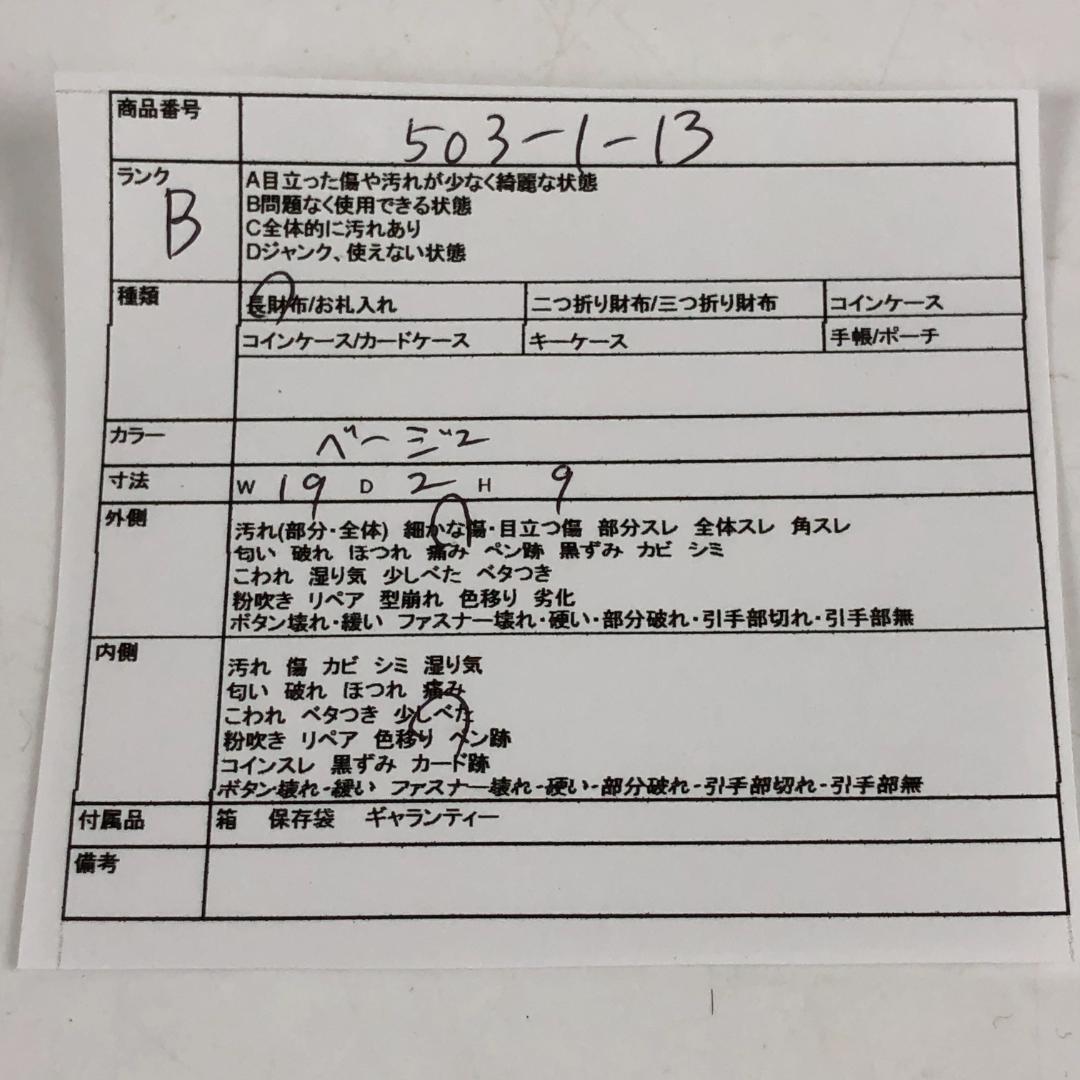 商品番号 503-1-13
ランク B
A目立った傷や汚れが少なく綺麗な状態
B問題なく使用できる状態
C全体的に汚れあり
Dジャンク、使えない状態
種類 長財布/お札入れ 二つ折り財布/三つ折り財布 コインケース
コインケース/カードケース キーケース 手帳/ポーチ
カラー ベージュ
寸法 W 19 D 2 H 9
外側
汚れ(部分・全体) 細かな傷・目立つ傷 部分スレ 全体スレ 角スレ
匂い 破れ ほつれ 痛み ペン跡 黒ずみ カビ シミ
こわれ 湿り気 少しべた ベタつき
粉吹き リペア 型崩れ 色移り 劣化
ボタン壊れ・緩い ファスナー壊れ・硬い・部分破れ・引手部切れ・引手部無
内側
汚れ 傷 カビ シミ 湿り気
匂い 破れ ほつれ 痛み
こわれ ベタつき 少しべた
粉吹き リペア 色移り ペン跡
コインスレ 黒ずみ カード跡
ボタン壊れ・緩い ファスナー壊れ・硬い・部分破れ・引手部切れ・引手部無
付属品 箱 保存袋 ギャランティー
備考